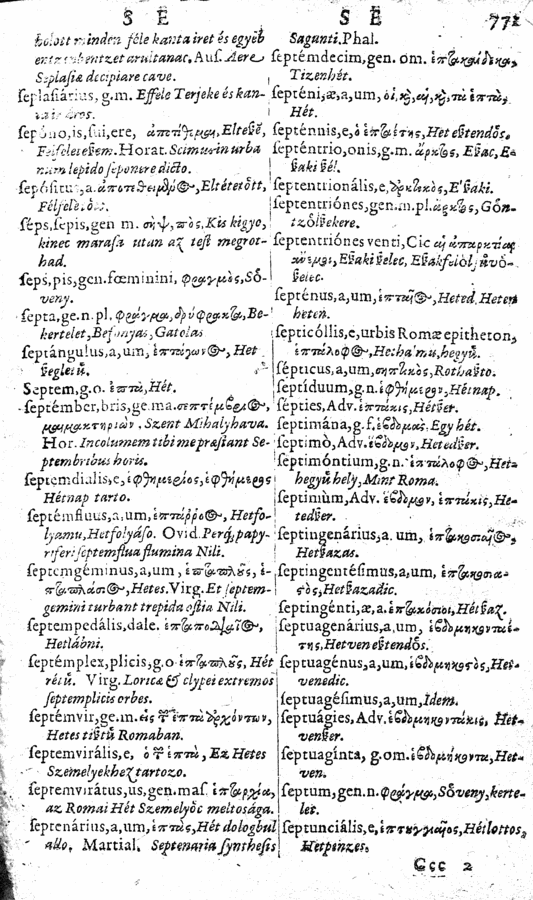 S E
S E
772
holott minden féle kantairet és egyéb
Aus. Aere
Seplasiæ decipiare cave.
seplasiárius, g.m. Effele Terjeke és kan-
sepóno, is, sui, ere, ἀποτίθημι,
Horat. Scimus inurba
num lepido seponere dicto.
sepósitus, a. Eltétetött,
séps, sepis, gen m. σὴψ, πὸς, Kis kigyo,
kinec marasa utun az test megrot-
had.
seps, pis, gen. fœminini, φραγμὸς, Sö-
veny.
septa, ge. n. pl. φράγμα, δρύφρακτα, Be-
kertelet, Gatolas
septángulus, a, um, ἑπτάγων@, Het
Septem, g.o. ἑπτὰ, Hét.
septémber, bris, ge. ma. σεπτέμβρι@,
μαιμακτηριών. Szent Mihalyhava.
Hor. Incolumem tibi me præstant Se-
ptembribus horis.
septemdialis, e, ἐφθημερίος, ἐφθήμερος
Hétnap tarto.
septémfluus, a, um, ἑπτάρρο@, Hetfo-
lyamu, Hetfolyáso. Ovid. Perq́, papy-
riferi septemflua flumina Nili.
septemgéminus, a, um, ἑπταπλοῦς, ἑ-
πταπλάσι@, Hetes. Virg. Et septem-
gemini turbant trepida ostia Nili.
septempedális, dale.
Hetlábni.
septémplex, plicis, g.o ἑπταπλοῦς, Hét
rétű. Virg. Loricæ & clypei extremos
septemplicis orbes.
septémvir, ge. m. εἷς τῶν ἑπτὰ ἀρχόντων,
Hetes tistű Romaban.
septemvirális, e, ὁ τῶν ἑπτὰ, Ez Hetes
Szemelyekhez tartozo.
septemvirátus, us, gen. mas. ἑπταρχία,
az Romai Hét Szemelyöc meltosága.
septenárius, a, um, ἑπτὰς, Hét dologbul
allo. Martial. Septenaria synthesis
Sagunti. Phal.
septémdecim, gen. om. ἑπτακαίδεκα,
Tizenhét.
septéni, æ, a, um, οἱ, καὶ, αἱ, καὶ, τὰ ἑπτὰ,
Hét.
septénnis, e, ὁ ἑπταέτης, Het estendös.
septéntrio, onis, g.m. ἄρκτος, Eszac, E-
szaki szél.
septentrionális, e, ἀρκτικὸς, E'szaki.
septentriónes, gen. m. pl. ἄρκτος, Gön-
tzölszekere.
septentriónes venti, Cic αἱ ἀπαρκτίαι
ἄνεμοι, Eszaki szelec,
szelec.
septénus, a, um, Heted. Heten
heten.
septicóllis, e, urbis Romæ epitheton,
ἑπτάλοφ@, Hethalmu, hegyű.
sépticus, a, um, σηπτικὸς, Rothaszto.
septíduum, g.n. ἐφθήμερον, Hétnap.
sépties, Adv. ἑπτάκις, Hétszer.
septimána, g.f. ἑβδομὰς. Egy hét.
septimò, Adv. ἕβδομον, Hetedszer.
septimóntium, g.n. ἑπτάλοφ@, Het-
hegyű hely, Mint Roma.
septimùm, Adv. ἕβδομον, ἑπτάκις, He-
tedszer.
septingenárius, a. um,
Hetszazas.
septingentésimus, a, um, ἑπτακοσια-
στὸς, Hetszazadic.
septingénti, æ, a. ἑπτακόσιοι, Hétszaz.
septuagenárius, a, um, ἑβδομηκονταέ-
της, Hetven esztendös.
septuagénus, a, um, ἑβδομηκοστὸς, Het-
venedic.
septuagésimus, a, um, Idem.
septuágies, Adv. ἑβδομηκοντάκις, Het-
venszer.
septuagínta, g. om. ἑβδομήκοντα, Het-
ven.
septum, gen. n. φράγμα, Söveny, kerte-
let.
septunciális, e, Hétlottos,
Hetpenzes.
Ccc 2